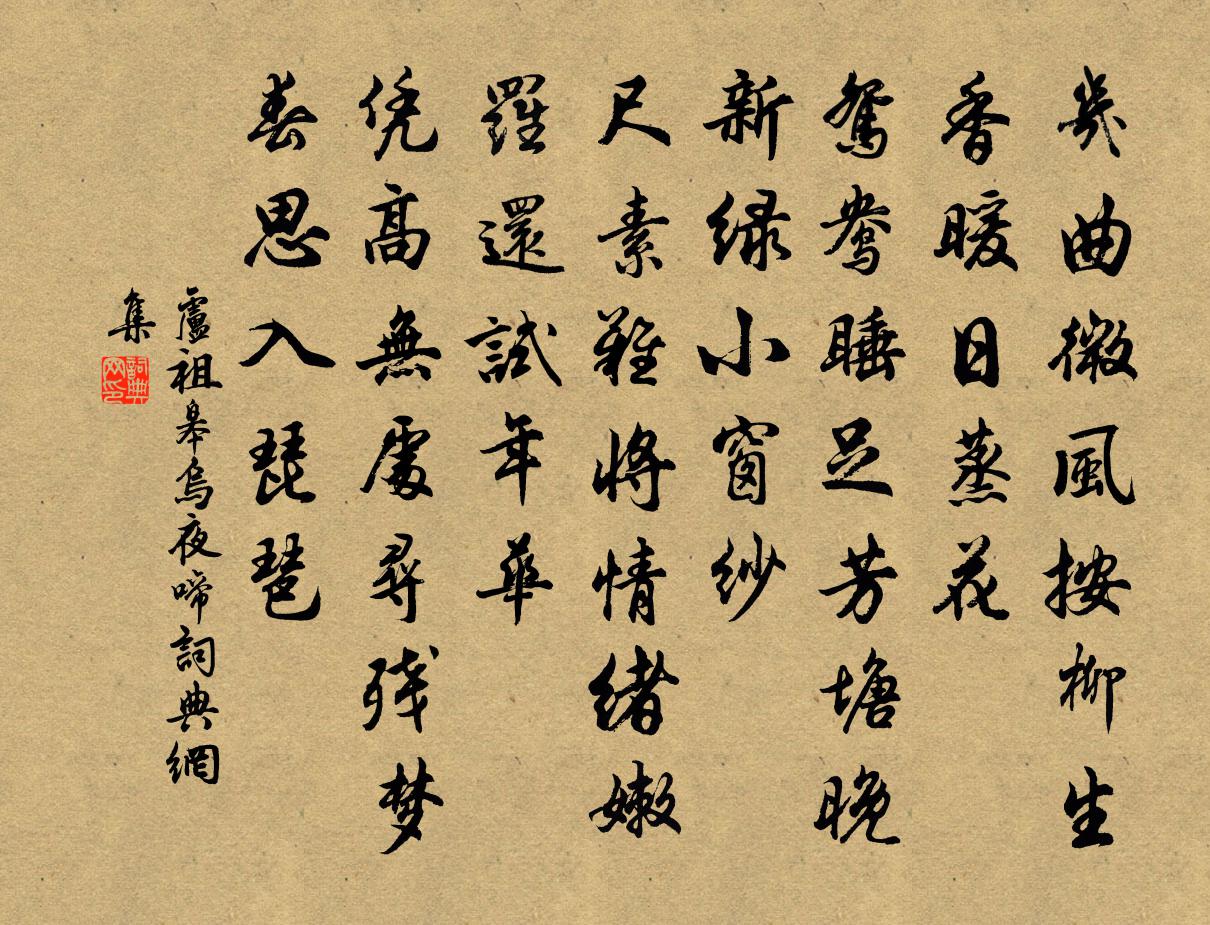 幾曲微風按柳生
香暖日蒸花
鴛鴦睡足芳塘晚
新绿小窗紗
尺素難將情緒嫩
羅還試年華
凭高無處尋残梦
春思入琵琶
盧祖皋烏夜啼詞典網
集
詞典网印